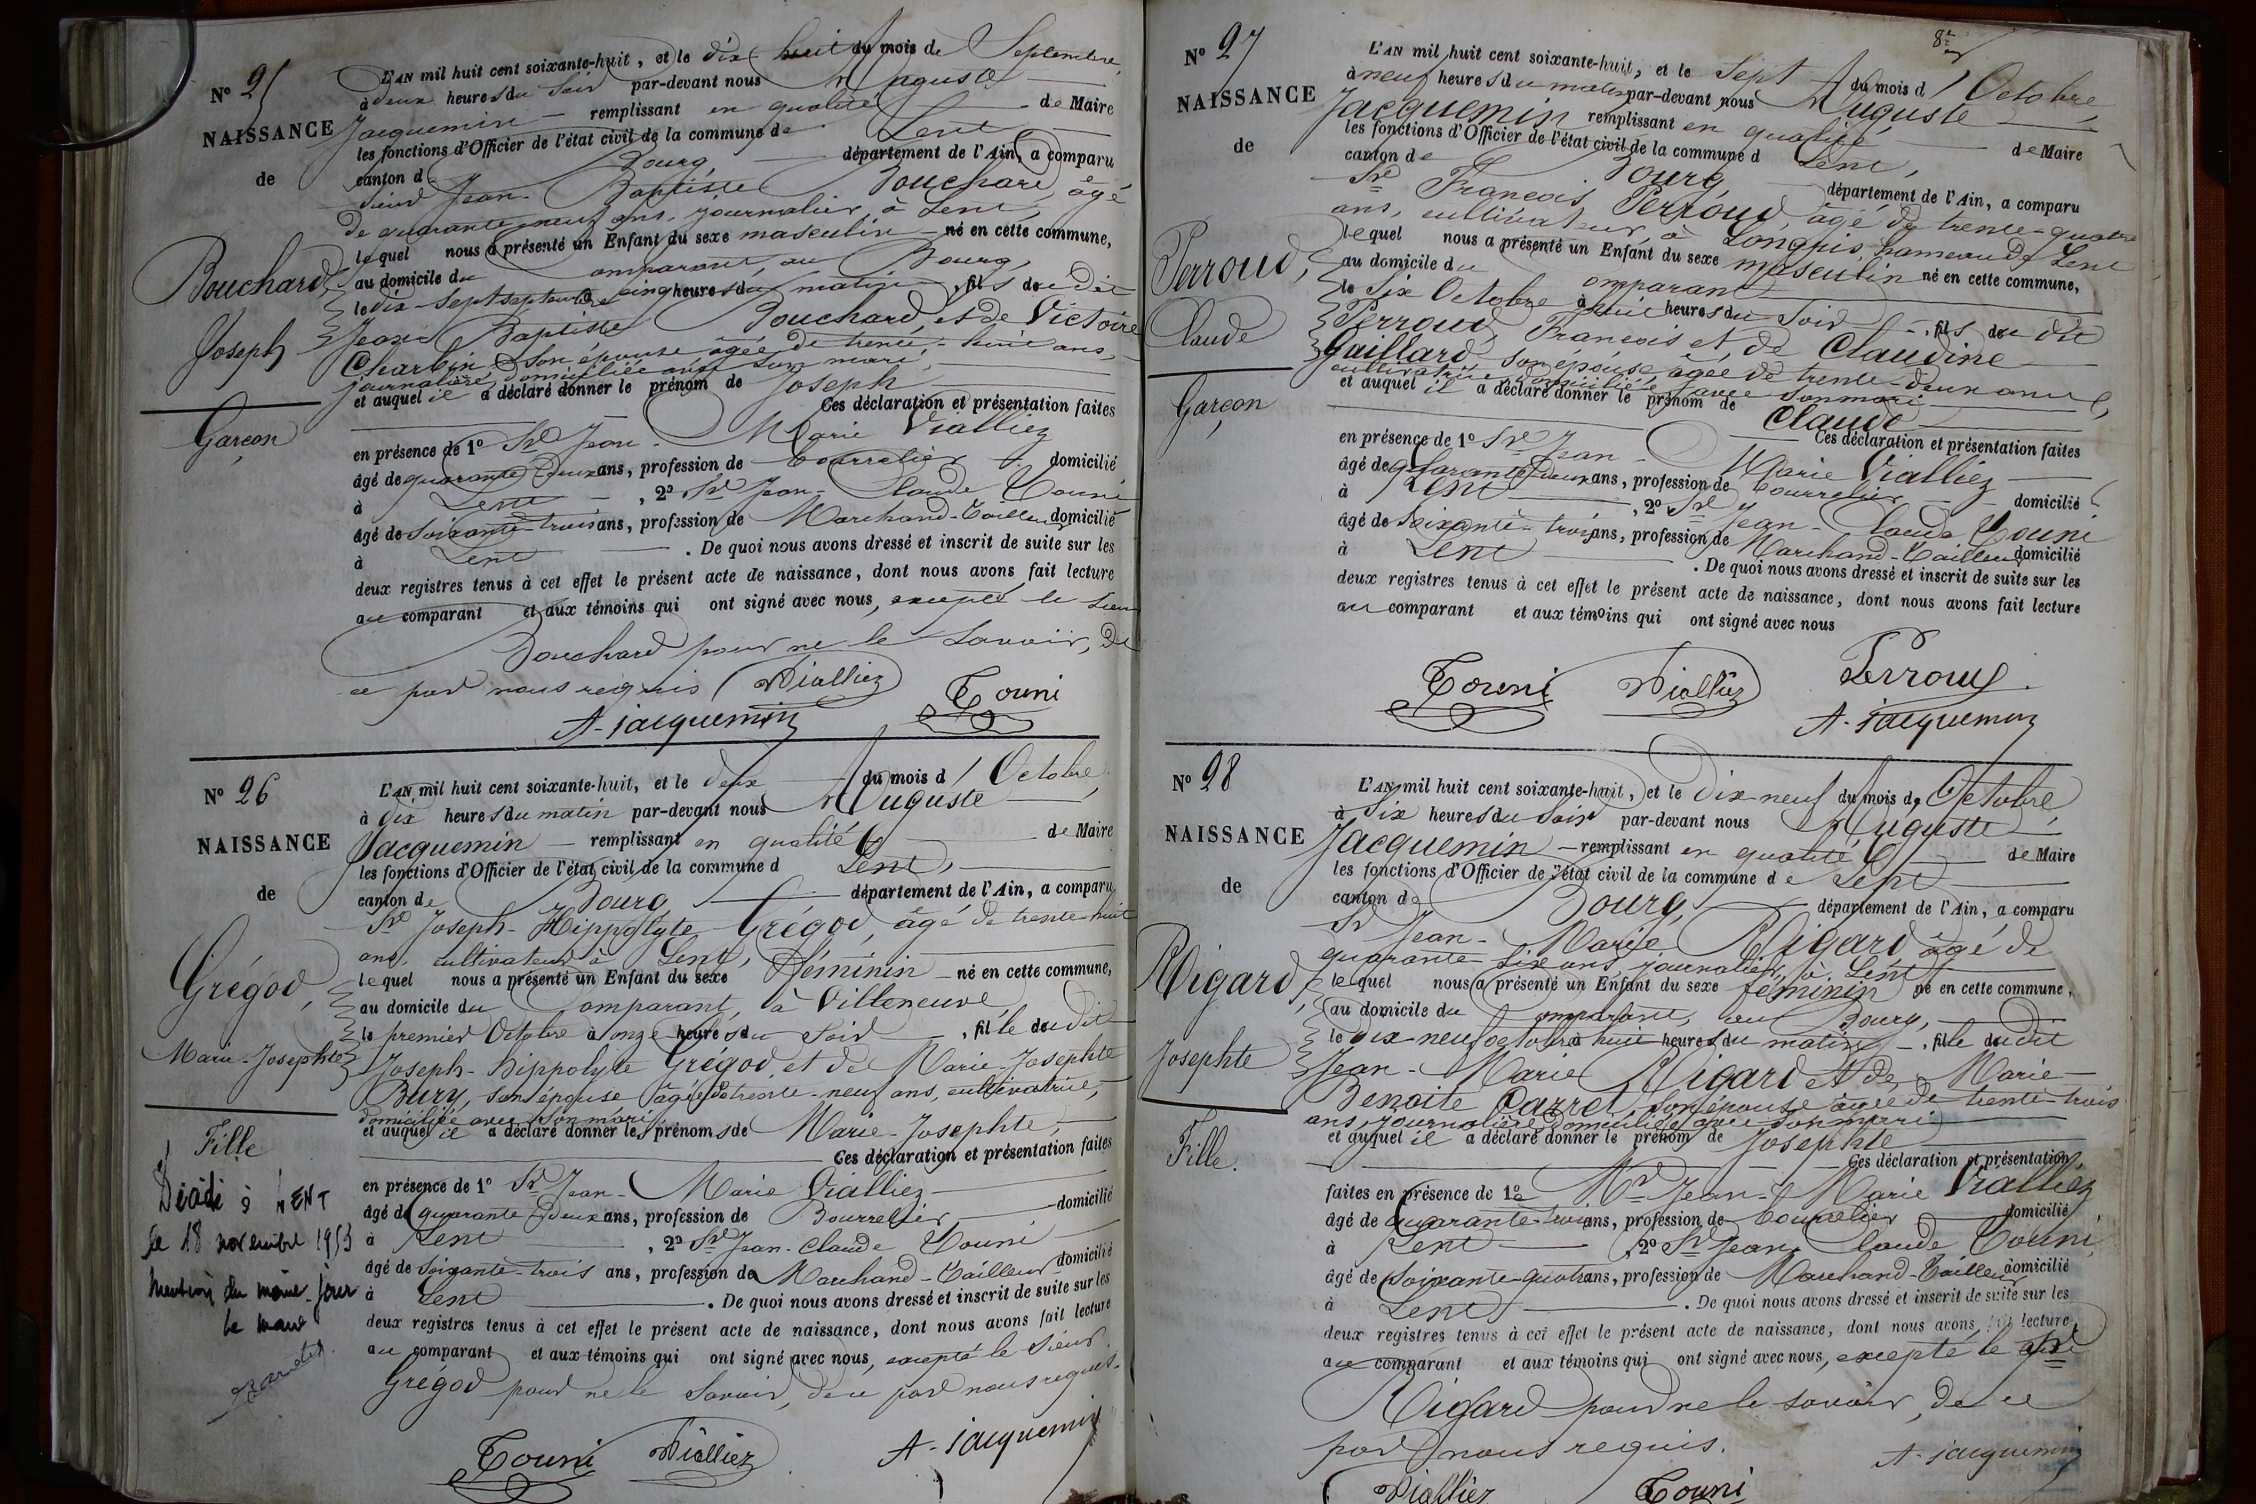 N° 25
NAISSANCE
de
Bouchard
Joseph
Garçon
L'AN mil huit cent soixante-huit, et le dix huit du mois de Septembre,
à deux heures du soir par-devant nous Auguste
Jacquemin remplissant en qualité de Maire
les fonctions d'Officier de l'état civil de la commune de Lent
canton de Bourg, département de l'Ain, a comparu
Sieur Jean-Baptiste Bouchard âgé
de quarante neuf ans, journalier à Lent,
lequel nous a présenté un Enfant du sexe masculin né en cette commune,
au domicile du comparant, au Bourg,
le dix-sept septembre à cinq heures du matin, fils du dit
Jean Baptiste Bouchard, et de Victoire
Charbin, son épouse âgée de trente-huit ans,
journalière, domiciliée avec son mari,
et auquel il a déclaré donner le prénom de Joseph
Ces déclaration et présentation faites
en présence de 1° Sr Jean-Marie Vialliez
âgé de quarante deux ans, profession de Bourrelier domicilié
à Lent, 2° Sr Jean-Claude Touni
âgé de soixante-trois ans, profession de Marchand-Tailleur domicilié
à Lent. De quoi nous avons dressé et inscrit de suite sur les
deux registres tenus à cet effet le présent acte de naissance, dont nous avons fait lecture
au comparant et aux témoins qui ont signé avec nous, excepté le Sieur
Bouchard pour ne le savoir, de
ce par nous requis Vialliez Touni
A. jacquemin
N° 26
NAISSANCE
de
Grégod,
Marie-Josephte
Fille
Décédé à LENT
le 18 novembre 1953
Mention du même jour
Le Maire
L'AN mil huit cent soixante-huit, et le deux du mois d'Octobre,
à dix heures du matin par-devant nous Auguste
Jacquemin remplissant en qualité de Maire
les fonctions d'Officier de l'état civil de la commune d Lent,
canton de Bourg département de l'Ain, a comparu
Sr Joseph-Hippolyte Grégod, âgé de trente-huit
ans, cultivateur à Lent,
lequel nous a présenté un Enfant du sexe féminin né en cette commune,
au domicile du comparant, à Villeneuve,
le premier Octobre à onze heures du soir, fille dudit
Joseph-Hippolyte Grégod, et de Marie-Josephte
Bury, son épouse âgée de trente-neuf ans, cultivatrice,
domiciliée avec son mari,
et auquel il a déclaré donner les prénoms de Marie-Josephte,
Ces déclaration et présentation faites
en présence de 1° Sr Jean-Marie Vialliez
âgé de quarante deux ans, profession de Bourrelier domicilié
à Lent, 2° Sr Jean-Claude Touni
âgé de soixante-trois ans, profession de Marchand-Tailleur domicilié
à Lent. De quoi nous avons dressé et inscrit de suite sur les
deux registres tenus à cet effet le présent acte de naissance, dont nous avons fait lecture
au comparant et aux témoins qui ont signé avec nous, excepté le Sieur
Grégod pour ne le savoir, de ce par nous requis.
Touni Vialliez A. jacquemin
8
N° 27
NAISSANCE
de
Perroud,
Claude
Garçon
L'AN mil huit cent soixante-huit, et le sept du mois d'Octobre,
à neuf heures du matin par-devant nous Auguste
Jacquemin remplissant en qualité de Maire
les fonctions d'Officier de l'état civil de la commune d Lent,
canton de Bourg, département de l'Ain, a comparu
Sr François Perroud âgé de trente-quatre
ans, cultivateur, à Longris, hameau de Lent
lequel nous a présenté un Enfant du sexe masculin né en cette commune,
au domicile du comparant
le six Octobre à huit heures du soir, fils du dit
Perroud, François et de Claudine
Gaillard, son épouse, âgée de trente-deux ans,
cultivatrice domiciliée avec son mari
et auquel il a déclaré donner le prénom de Claude
Ces déclaration et présentation faites
en présence de 1° Sr Jean-Marie Vialliez
âgé de quarante deux ans, profession de Bourrelier domicilié
à Lent, 2° Sr Jean-Claude Touni
âgé de soixante-trois ans, profession de Marchand-Tailleur domicilié
à Lent. De quoi nous avons dressé et inscrit de suite sur les
deux registres tenus à cet effet le présent acte de naissance, dont nous avons fait lecture
au comparant et aux témoins qui ont signé avec nous
Touni Vialliez Perroud
A. jacquemin
N° 28
NAISSANCE
de
Migard,
Josephte
Fille.
L'AN mil huit cent soixante-huit, et le dix neuf du mois de Octobre,
à six heures du soir par-devant nous Auguste
Jacquemin remplissant en qualité de Maire
les fonctions d'Officier de l'état civil de la commune de Lent
canton de Bourg, département de l'Ain, a comparu
Sr Jean-Marie Migard âgé de
quarante-six ans, journalier, à Lent
lequel nous a présenté un Enfant du sexe féminin né en cette commune,
au domicile du comparant, au Bourg,
le dix-neuf octobre à huit heures du matin, fille dudit
Jean-Marie Migard et de Marie-
Benoite Carret, son épouse âgée de trente-trois
ans, journalière domiciliée avec son mari
et auquel il a déclaré donner le prénom de Josephte
Ces déclaration et présentation
faites en présence de 1° Mr Jean-Marie Vialliez
âgé de quarante-trois ans, profession de Bourrelier domicilié
à Lent, 2° Sr Jean Claude Touni
âgé de soixante-quatre ans, profession de Marchand-Tailleur domicilié
à Lent. De quoi nous avons dressé et inscrit de suite sur les
deux registres tenus à cet effet le présent acte de naissance, dont nous avons fait lecture
au comparant et aux témoins qui ont signé avec nous, excepté le Sr
Migard pour ne le savoir, de ce
par nous requis.
A. jacquemin
Vialliez Touni